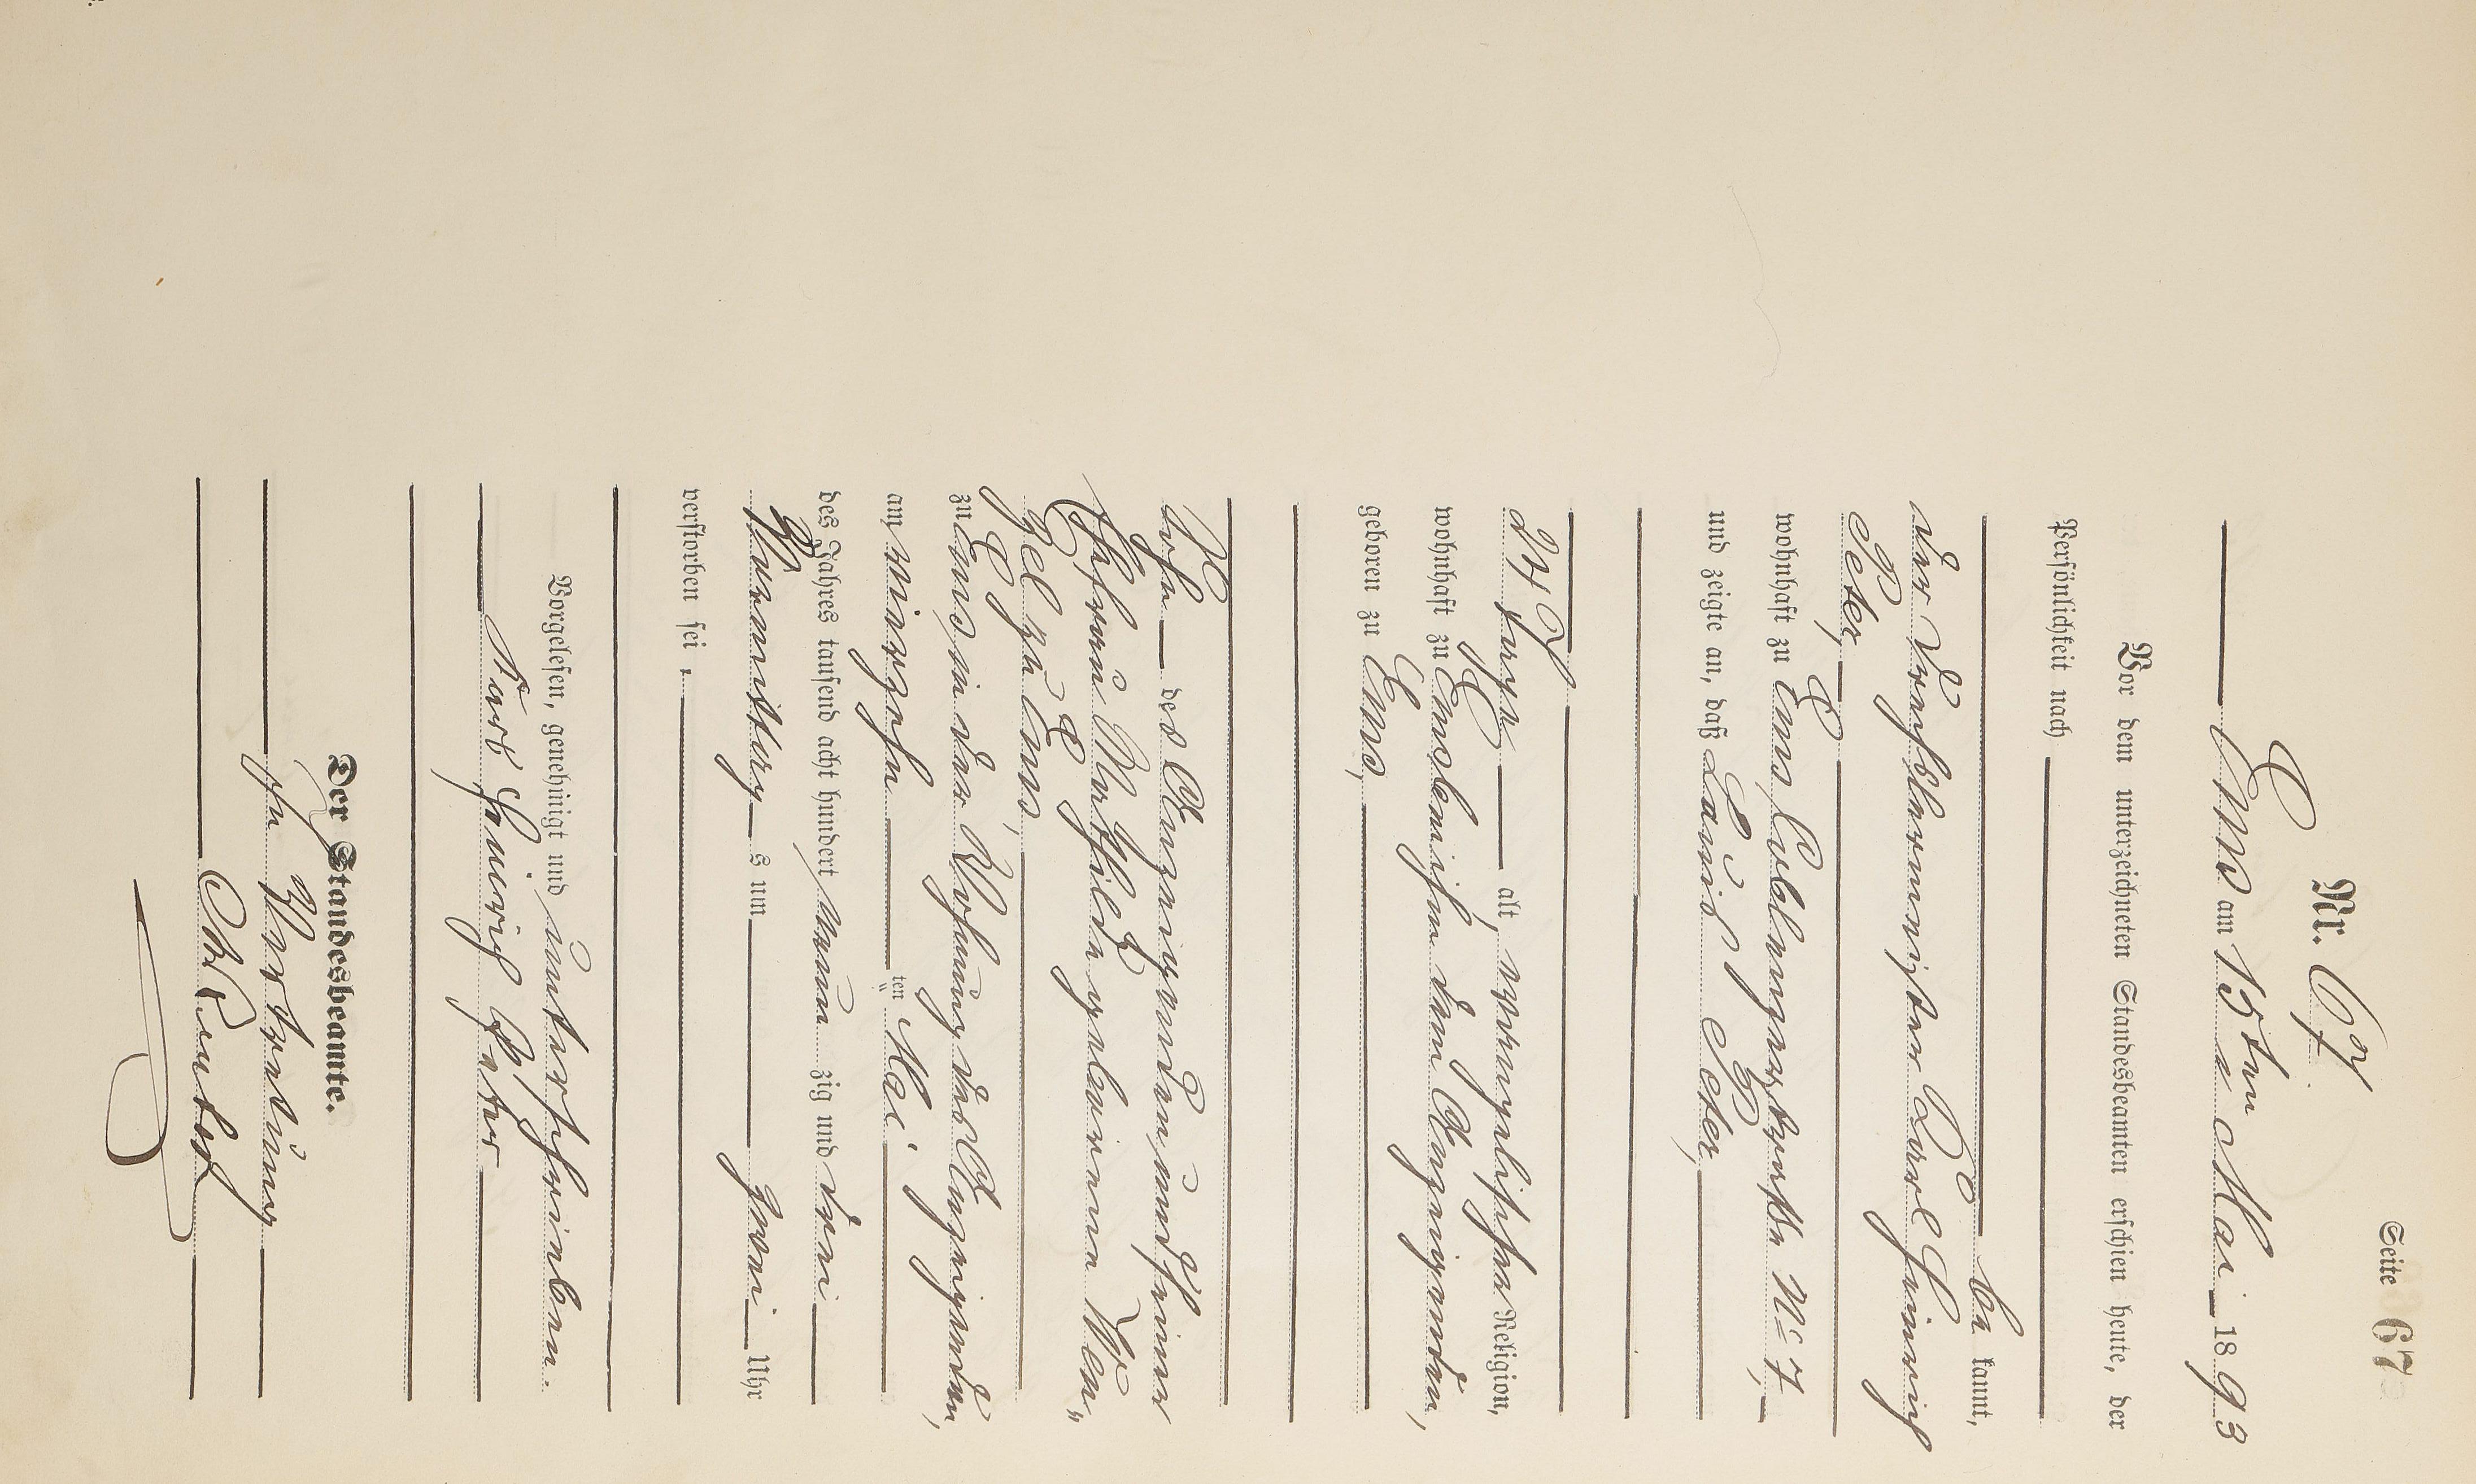 Seite 67
Nr. 67
Ems am 15ten Mai 1893
Vor dem unterzeichneten Standesbeamten erschien heute, der
Persönlichkeit nach
be kannt,
der Drechslermeister Carl Heinrich
Peter,
wohnhaft zu Ems, Coblenzerstraße No 7,
und zeigte an, daß Louis Peter,
24 Jahre alt, evangelischer Religion,
wohnhaft zu Ems bei ihm dem Anzeigenden,
geboren zu Ems,
Sohn des Anzeigenden und seiner
Ehefrau Mathilde geborenen
zu Ems,
zu Ems in der Wohnung des Anzeigenden,
am vierzehn ten Mai
des Jahres tausend acht hundert neun zig und drei
Vormittags um zwei Uhr
verstorben sei.
Vorgelesen, genehmigt und unterschrieben.
Karl Heinrich Peter
Der Standesbeamte.
In Vertretung